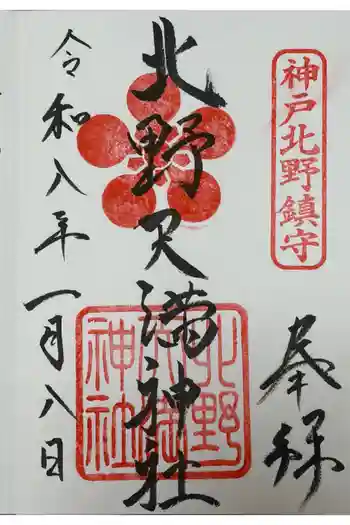 神戸北野鎮守
奉拝
北野天満神社
北野
天満
神社
令和八年一月八日